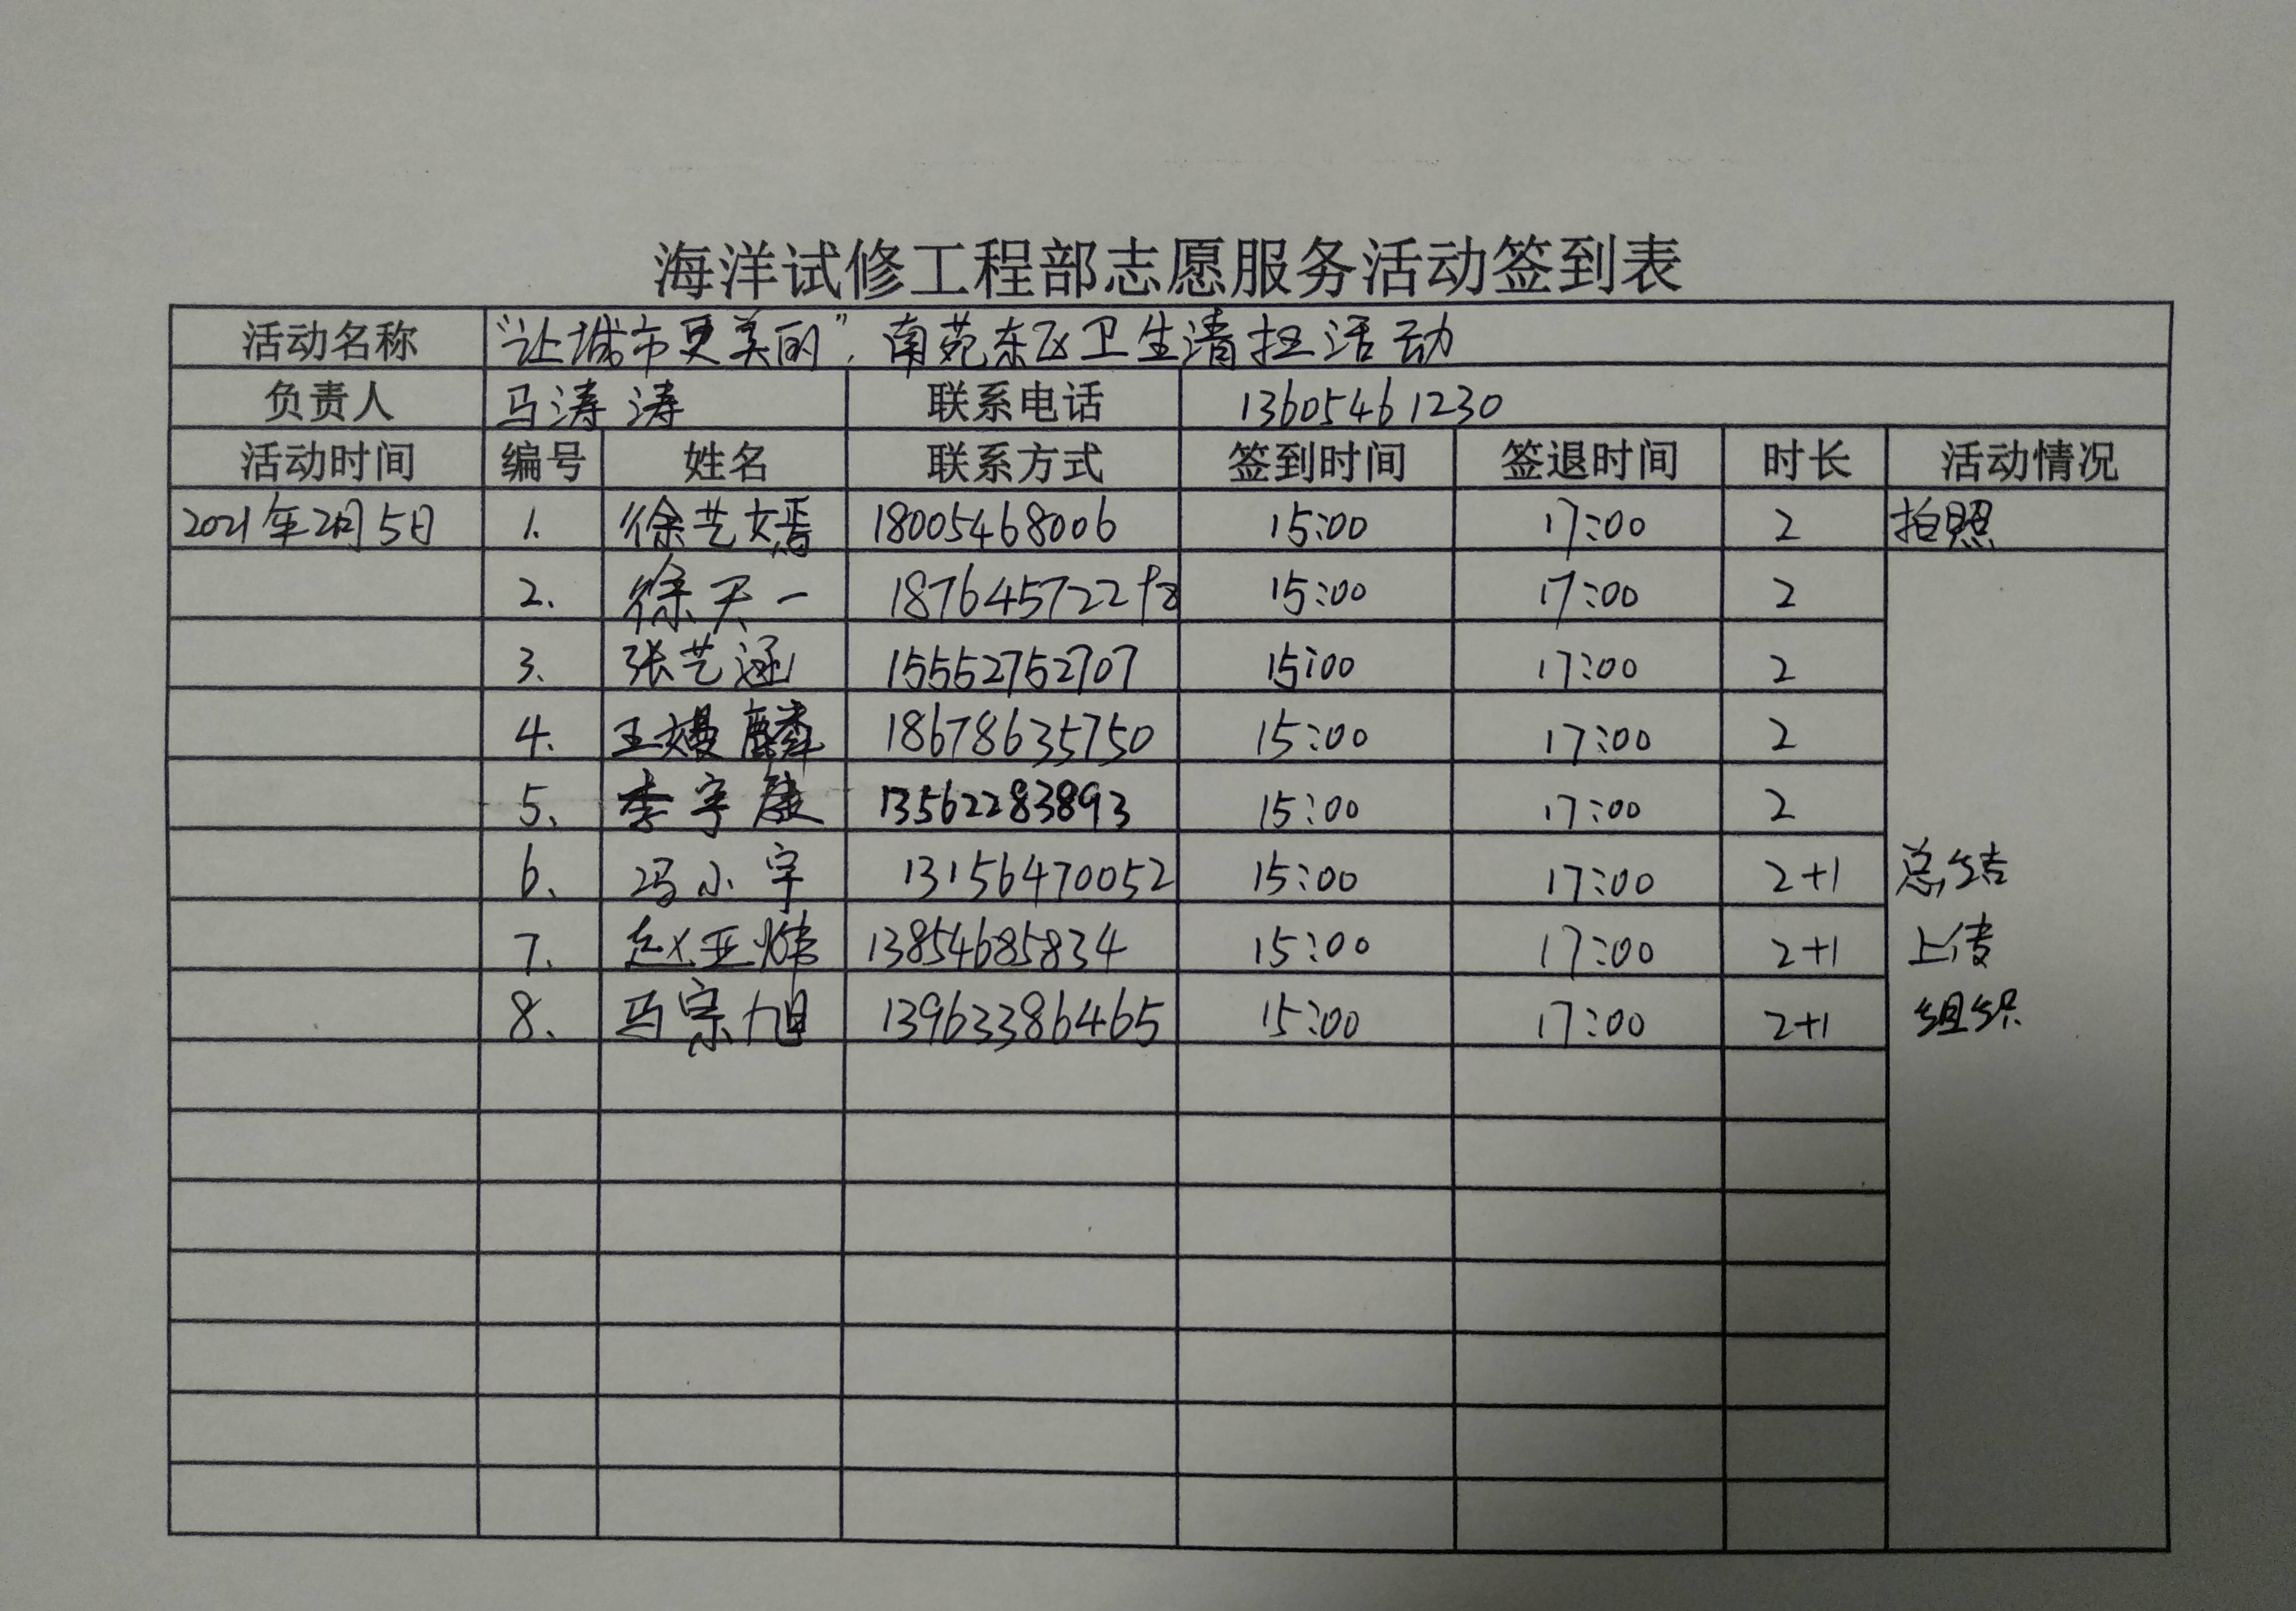 海洋试修工程部志愿服务活动签到表
活动名称 "让城市更美丽", 南苑东区卫生清扫活动
负责人 马涛涛 联系电话 13605461230
活动时间 编号 姓名 联系方式 签到时间 签退时间 时长 活动情况
2021年2月5日 1. 徐艺嫣 18005468006 15:00 17:00 2 拍照
2. 徐天一 187645722 15:00 17:00 2
3. 张艺涵 15552752707 15:00 17:00 2
4. 王嫚麟 18678635750 15:00 17:00 2
5. 李宇 13562283893 15:00 17:00 2
6. 冯小宇 13156470052 15:00 17:00 2+1 总结
7. 赵亚炜 13854685834 15:00 17:00 2+1 上传
8. 马宗旭 13963386465 15:00 17:00 2+1 组织